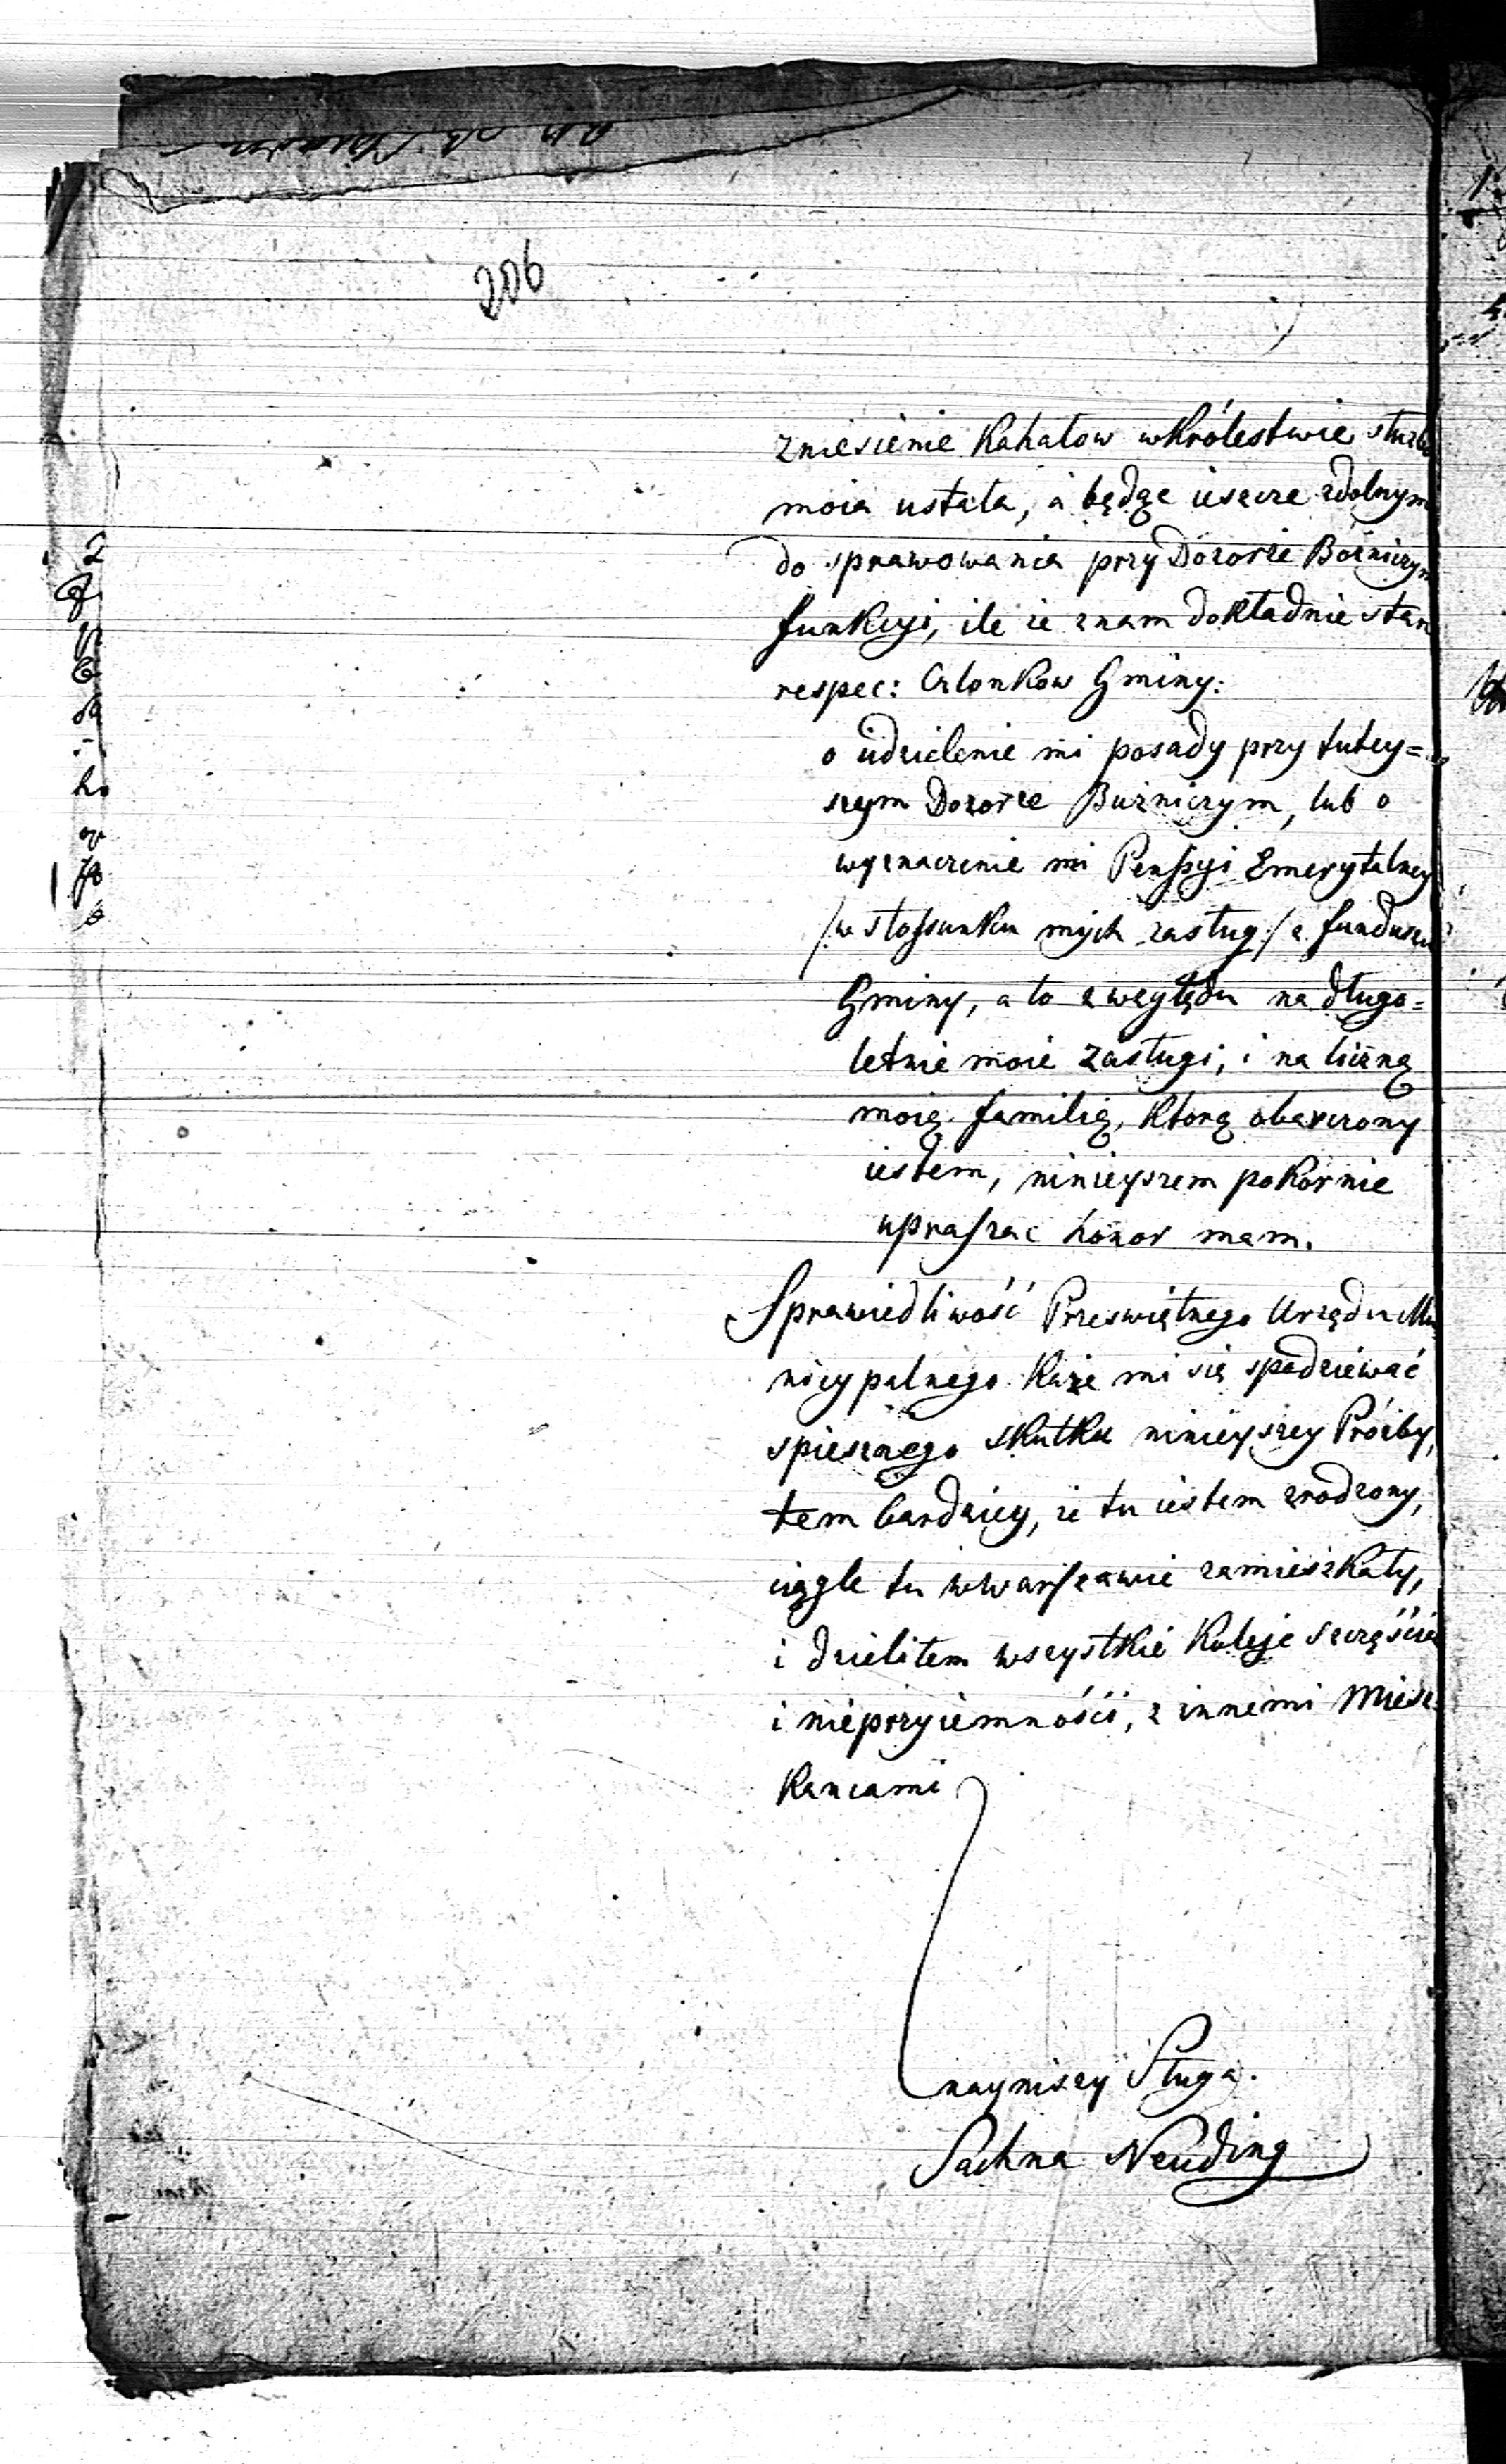 206
zniesienie Kahałow w Królestwie służba
moia ustała, a będąc ieszcze zdolnym
do sprawowania przy Dozorze Bożniczym
funkcyi, ile że znam dokładnie stan
respec: Członkow Gminy:
o udzielenie mi posady przy tutey=
szym Dozorze Bużniczym, lub o
wyznaczenie mi Penssyi Emerytalney
/:w stossunku mych zasług:/ z funduszu
Gminy, a to z względu na długo=
letnie moie zasługi, i na liczną
moię familię, ktorą obarczony
iestem, ninieyszem pokornie
upraszac honor mam.
Sprawiedliwość Przeświętnego Urzędu Mu
nicypalnego każe mi się spodziewać
spiesznego skutku ninieyszey Prozby,
tem bardziey, że tu iestem zrodzony,
ciągle tu w Warszawie zamieszkały,
i dzieliłem wszystkie koleje szczęścia
i nieprzyiemności, z innemi Miesz=
kancami
nayniszy Sługa.
Sachna Neuding